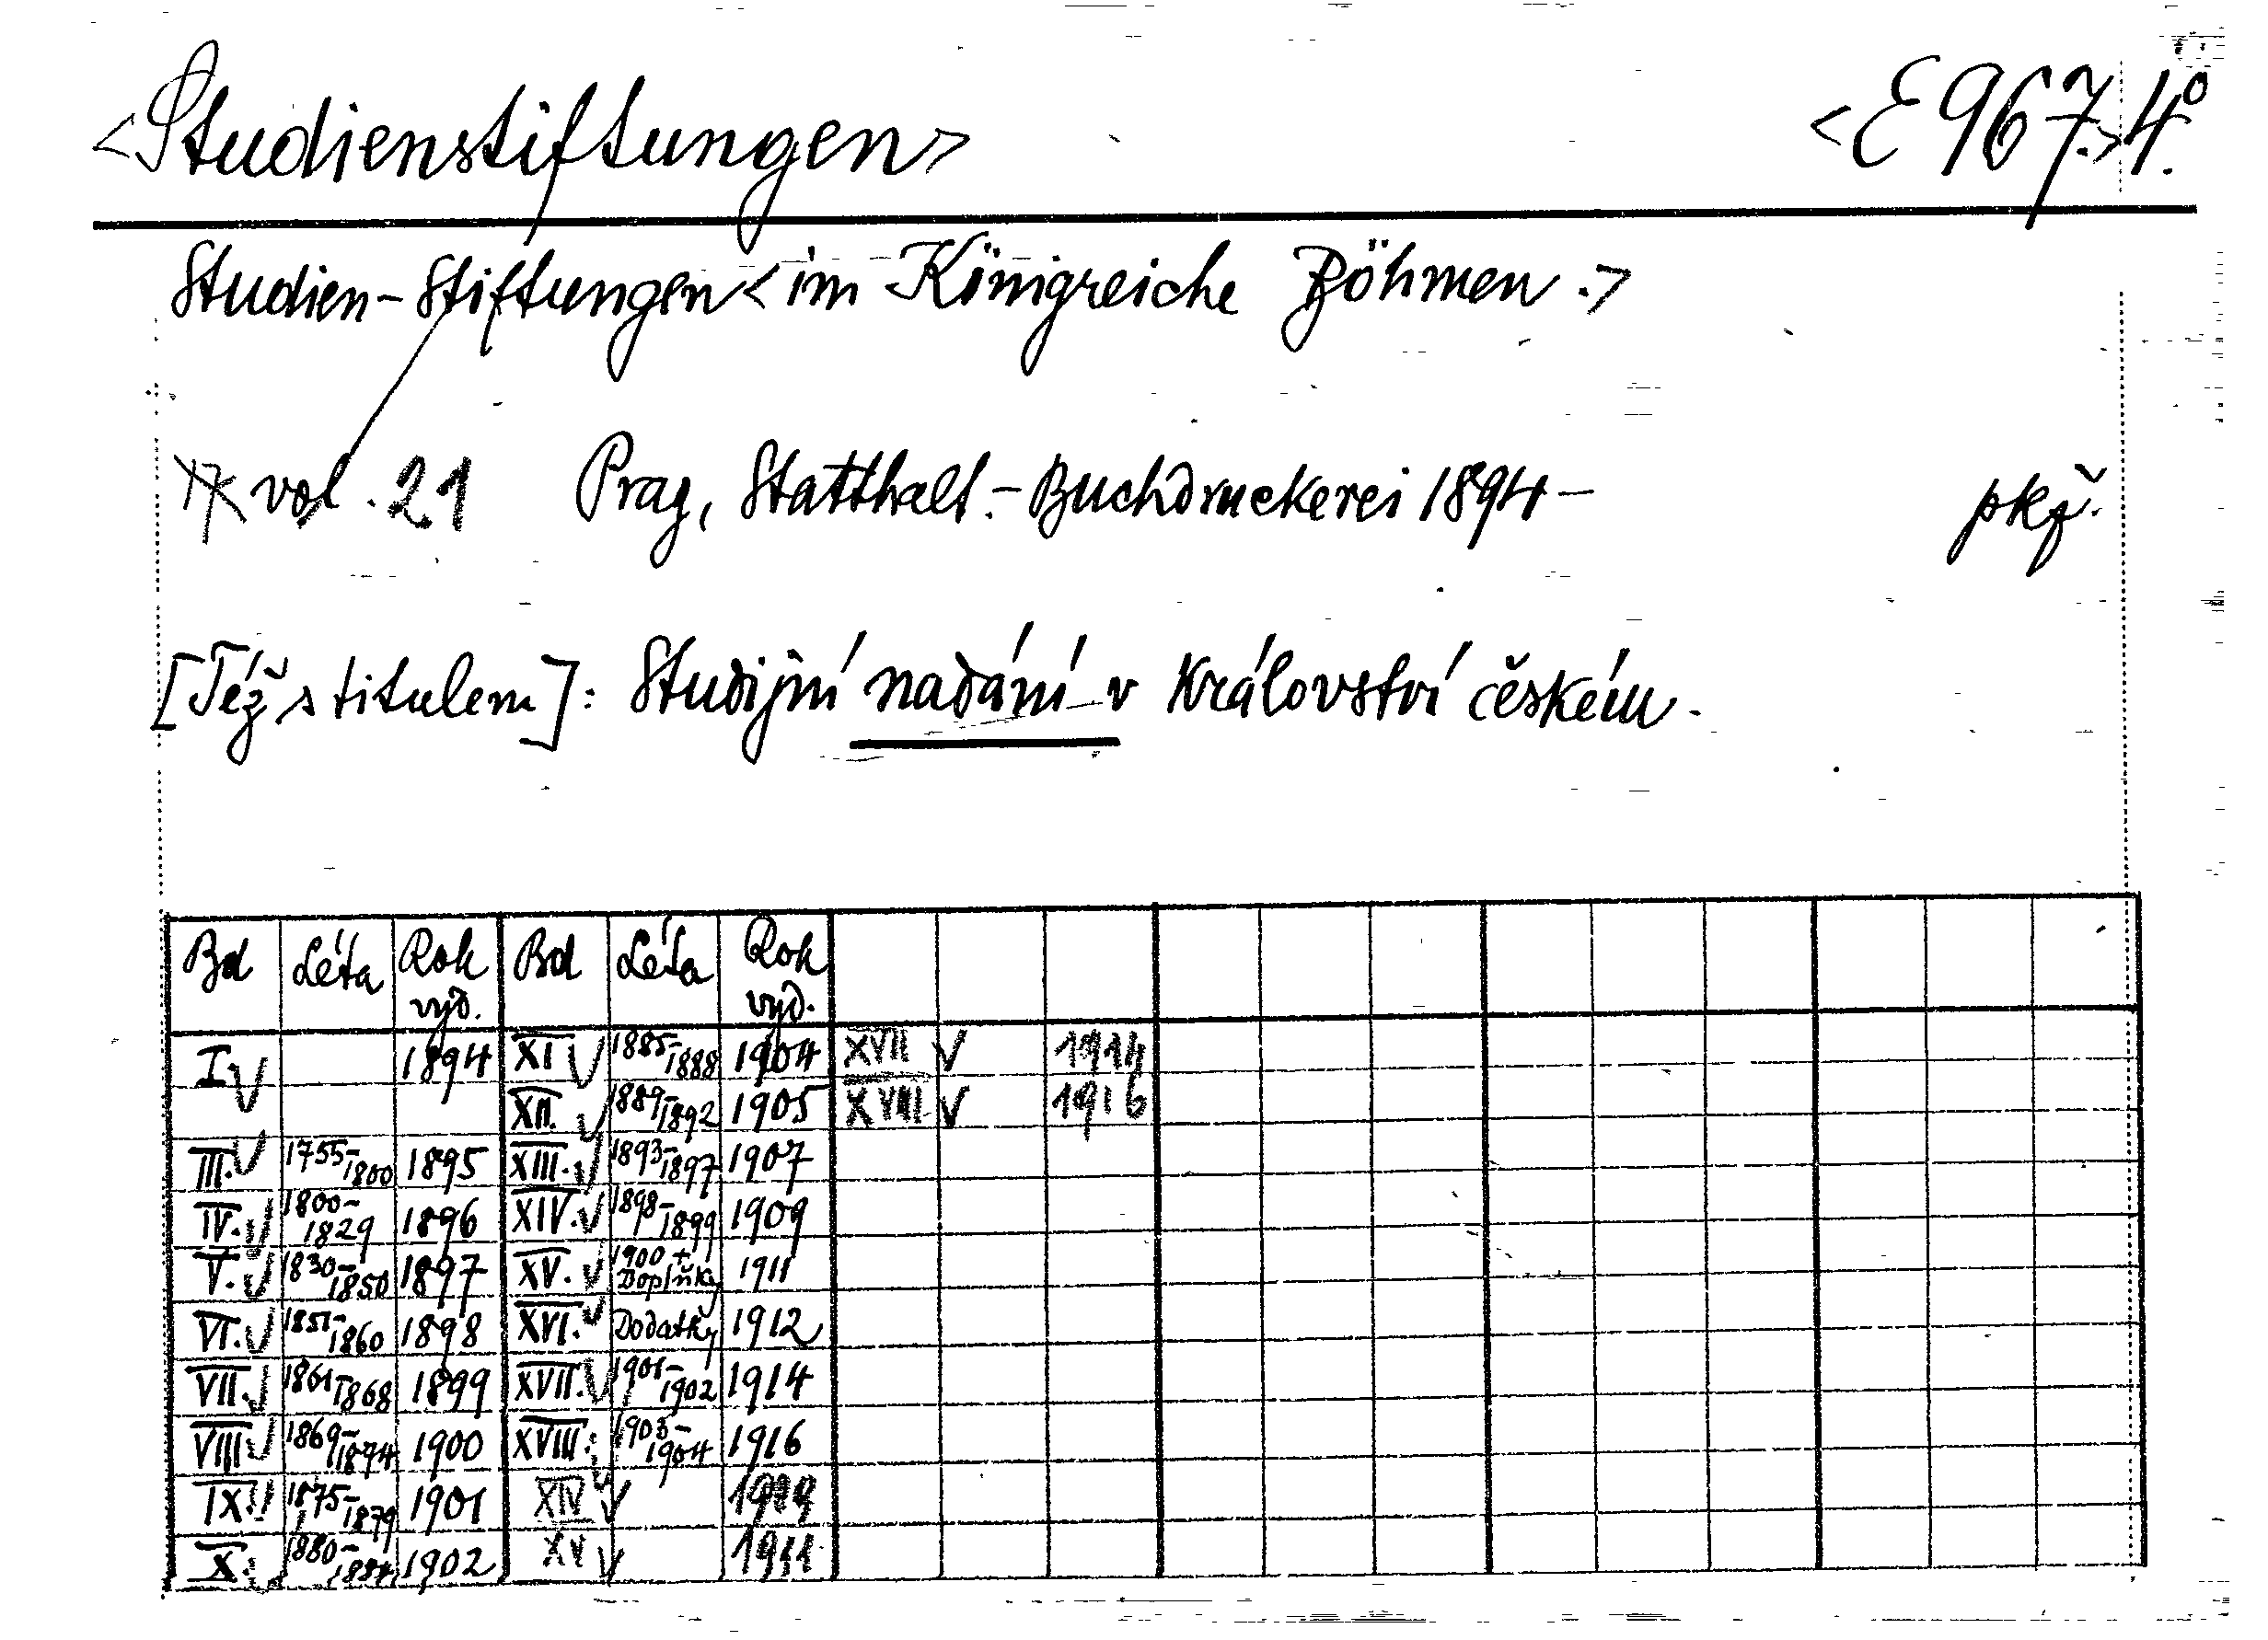 <Studienstiftungen> <E 967.> 4°.
Studien-Stiftungen < im Königreiche Böhmen .>
vol. 21 Prag, Statthalt.-Buchdruckerei 1894- pkř.
[Též s titulem]: Studijní nadání v království českém.
Bd Léta Rok vyd. Bd Léta Rok vyd.
I. V 1894 XI V 1885-1888 1904 XVII V 1914
XII. V 1889-1892 1905 XVIII V 1916
III. V 1755-1800 1895 XIII. V 1893-1897 1907
IV. V 1800-1829 1896 XIV. V 1898-1899 1909
V. V 1830-1850 1897 XV. V 1900 + Doplňky 1911
VI. V 1851-1860 1898 XVI. V Dodatky 1912
VII. V 1861-1868 1899 XVII. V 1901-1902 1914
VIII V 1869-1874 1900 XVIII. V 1903-1904 1916
IX. V 1875-1879 1901 XIV V
X. V 1880-1884 1902 XV V 1911